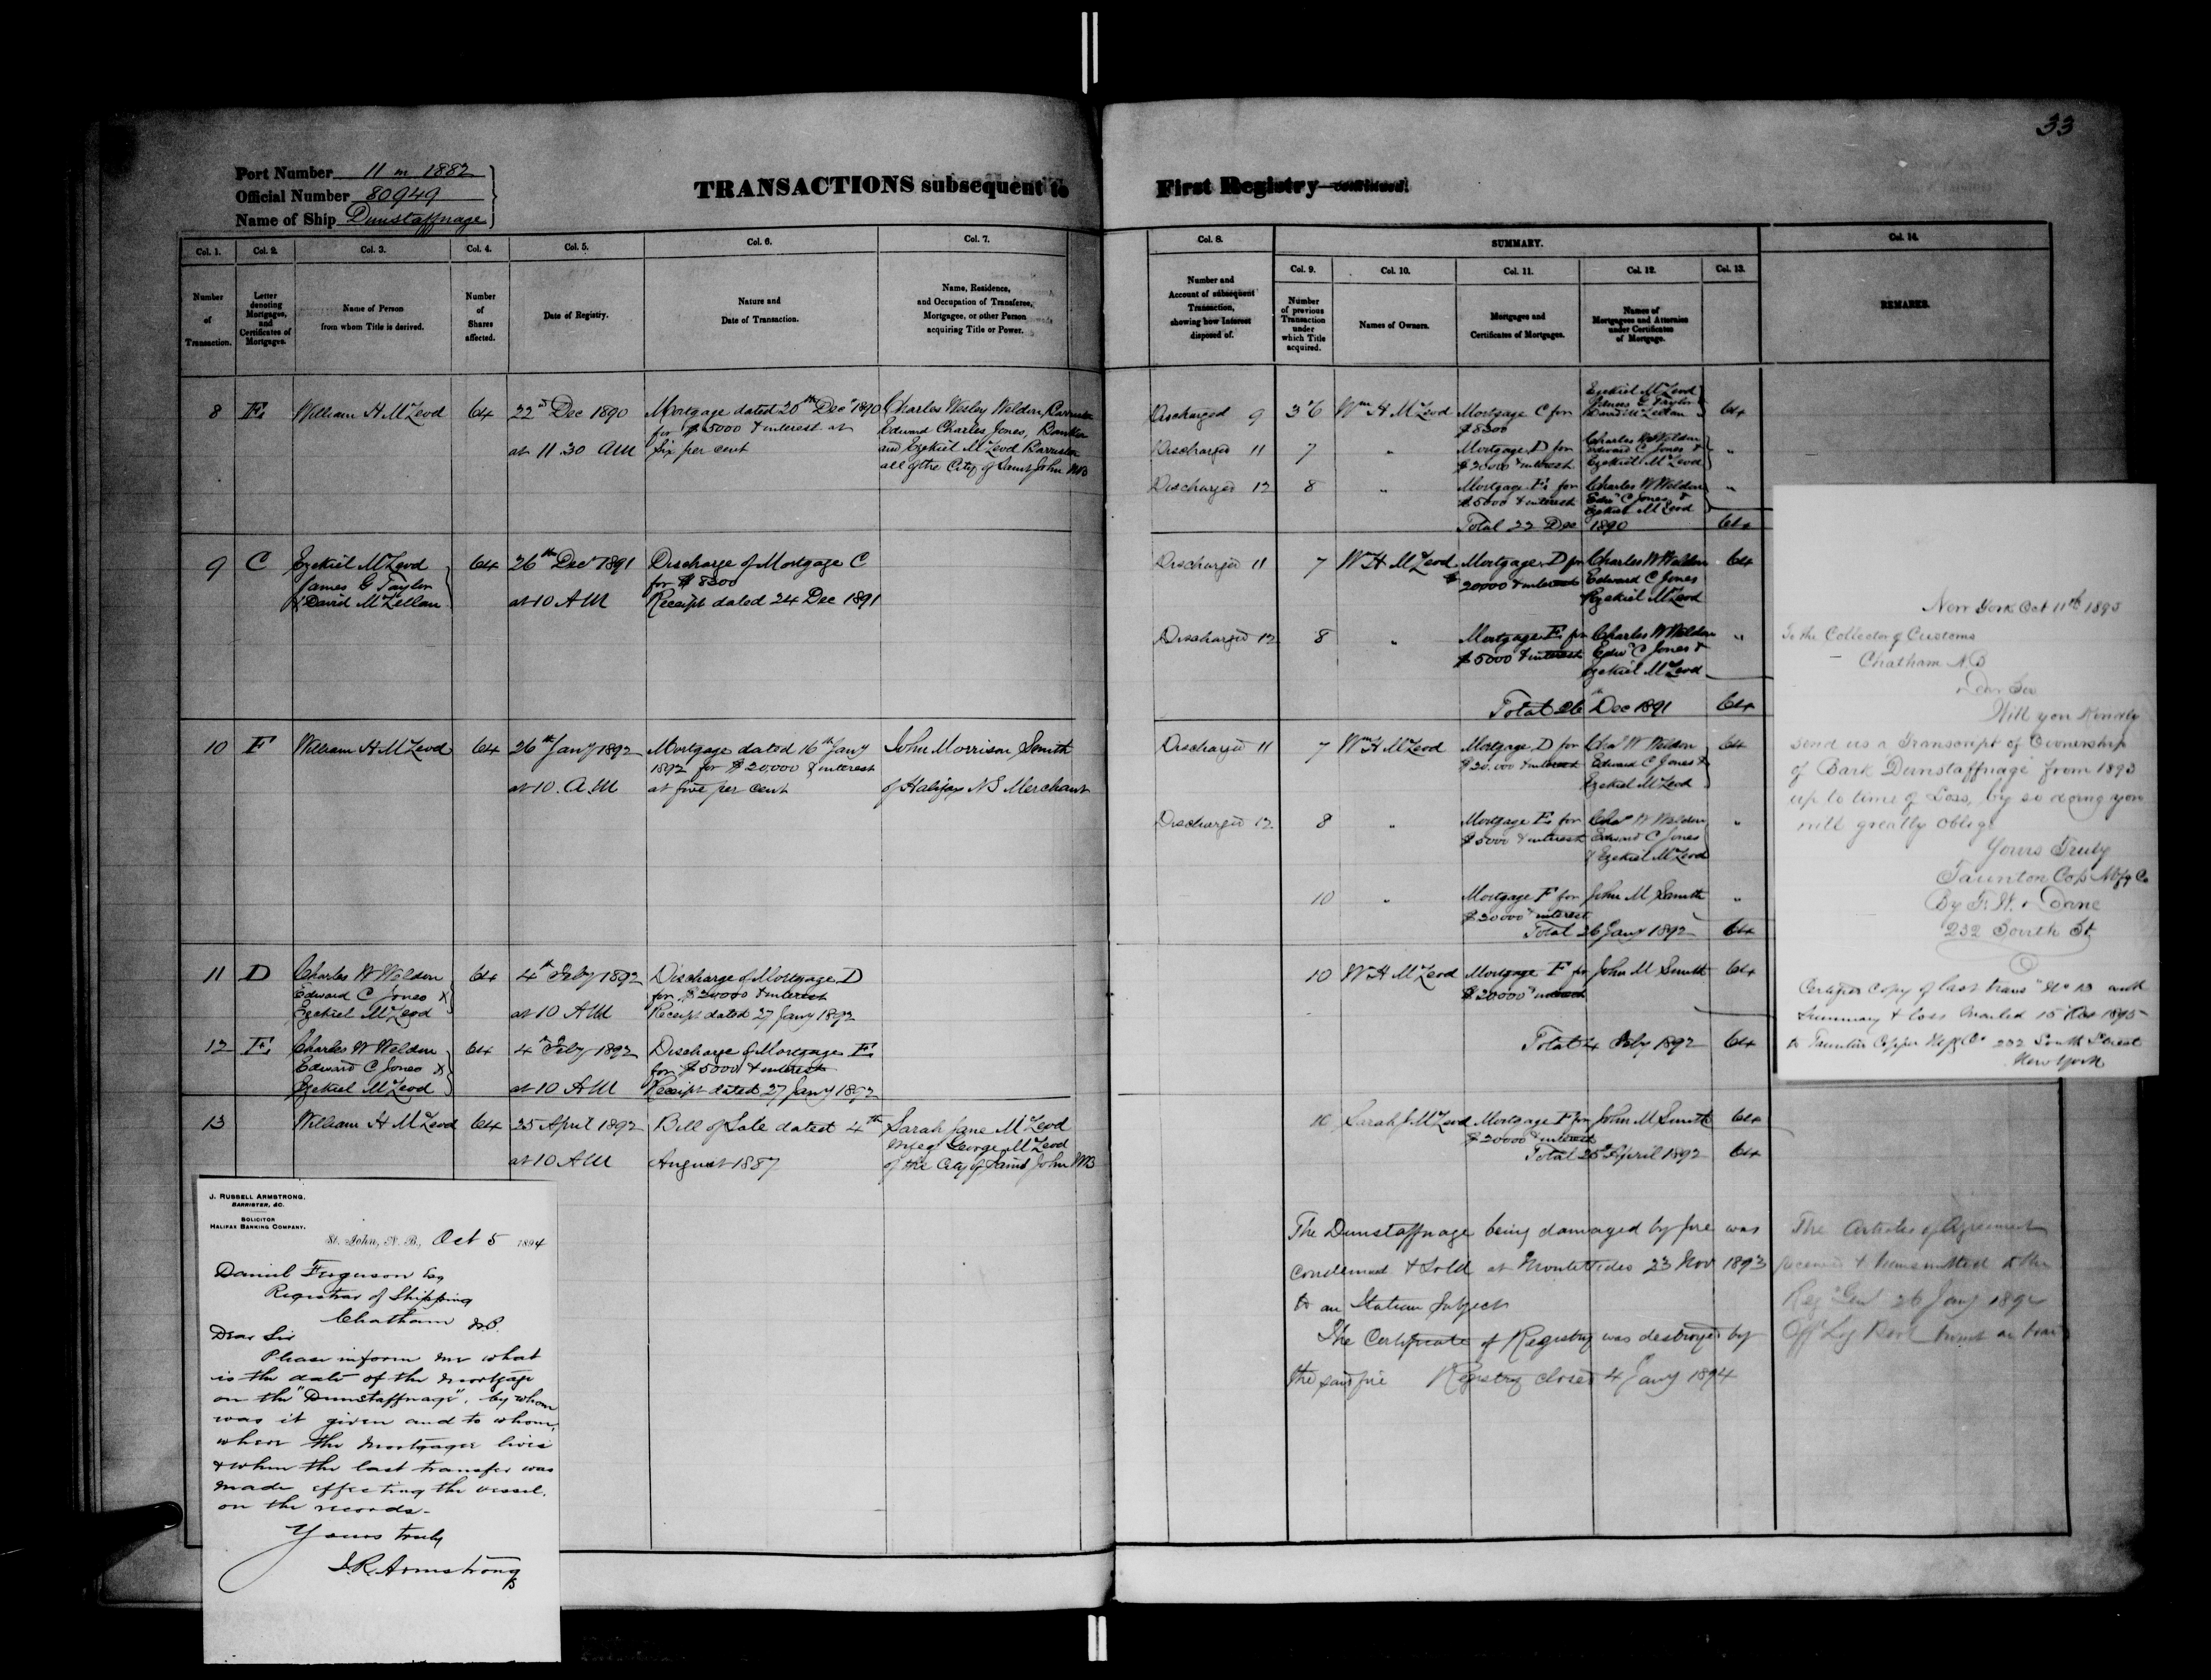 33
Port Number 11 in 1882
Official Number 80949
Name of Ship Dunstaffnage
TRANSACTIONS subsequent to First Registry—continued.
Col. 1. Col. 2. Col. 3. Col. 4. Col. 5. Col. 6. Col. 7.
Number of Transaction.
Letter denoting Mortgages, and Certificates of Mortgages.
Name of Person from whom Title is derived.
Number of Shares affected.
Date of Registry.
Nature and Date of Transaction.
Name, Residence, and Occupation of Transferee, Mortgagee, or other Person acquiring Title or Power.
8 E William H McLeod 64 22nd Dec 1890 Mortgage dated 20th Decr 1890 Charles Wesley Weldon, Barrister
for $5000 & interest at Edward Charles Jones, Banker
at 11 30 AM Six per cent and Ezekiel McLeod Barrister
all of the City of Saint John NB
9 C Ezekiel McLeod 64 26th Decr 1891 Discharge of Mortgage C
James G Taylor for $8300
& David McLellan at 10 AM Receipt dated 24 Dec 1891
10 F William H McLeod 64 26th Jany 1892 Mortgage dated 16th Jany John Morrison Smith
1892 for $20,000 & interest
at 10. A.M at five per cent of Halifax NS Merchant
11 D Charles W Weldon 64 4th Feby 1892 Discharge of Mortgage D
Edward C Jones & for $20000 & interest
Ezekiel McLeod at 10 AM Receipt dated 27 Jany 1892
12 E Charles W Weldon 64 4th Feby 1892 Discharge of Mortgage E
Edward C Jones & for $5000 & interest
Ezekiel McLeod at 10 AM Receipt dated 27 Jany 1892
13 William H McLeod 64 25 April 1892 Bill of Sale dated 4th Sarah Jane McLeod
George McLeod
at 10 AM August 1887 of the City of Saint John NB
J. RUSSELL ARMSTRONG,
BARRISTER, &C.
SOLICITOR
HALIFAX BANKING COMPANY.
St. John, N. B., Oct 5 1894
Daniel Ferguson Esq
Registrar of Shipping
Chatham N.B.
Dear Sir
Please inform me what
is the date of the mortgage
on the "Dunstaffnage", by whom
was it given and to whom,
where the mortgagee lives
& when the last transfer was
made effecting the vessel.
on the records.
Yours truly
J.R. Armstrong
Col. 8. SUMMARY. Col. 14.
Col. 9. Col. 10. Col. 11. Col. 12. Col. 13.
Number and Account of subsequent Transaction, showing how Interest disposed of.
Number of previous Transaction under which Title acquired.
Names of Owners.
Mortgages and Certificates of Mortgages.
Names of Mortgagees and Attornies under Certificates of Mortgage.
REMARKS.
Discharged 9 3 & 6 Wm H McLeod Mortgage C for Ezekiel McLeod 64
$8300 James G Taylor
David McLellan
Discharged 11 7 " Mortgage D for Charles W Weldon "
$20000 & interest Edward C Jones &
Ezekiel McLeod
Discharged 12 8 " Mortgage E for Charles W Weldon "
$5000 & interest Edwd C Jones &
Ezekiel McLeod
Total 22 Dec 1890 64
Discharged 11 7 Wm H McLeod Mortgage D for Charles W Weldon 64
$20000 & interest Edward C Jones
Ezekiel McLeod
Discharged 12 8 " Mortgage E for Charles W Weldon "
$5000 & interest Edwd C Jones &
Ezekiel McLeod
Total 26th Dec 1891 64
Discharged 11 7 Wm H McLeod Mortgage D for Chas W Weldon 64
$20.000 & interest Edward C Jones &
Ezekiel McLeod
Discharged 12. 8 " Mortgage E for Chas W Weldon "
$5000 & interest Edward C Jones
& Ezekiel McLeod
10 " Mortgage F for John M Smith "
$20000 & interest
Total 26 Jany 1892 64
10 Wm H McLeod Mortgage F for John M Smith 64
$20000 & interest
Total 4 Feby 1892 64
10 Sarah J McLeod Mortgage F for John M Smith 64
$20000 & interest
Total 25 April 1892 64
The Dunstaffnage being damaged by fire was
Condemned & Sold at Montevideo 23 Nov 1893
to an Italian Subject
The Certificate of Registry was destroyed by
the said fire Registry closed 4 Jany 1894
New York Oct 11th 1895
To the Collector of Customs
Chatham N.B
Dear Sir
Will you kindly
send us a Transcript of Ownership
of Bark Dunstaffnage from 1893
up to time of Loss, by so doing you
will greatly oblige
Yours Truly
Taunton Cop Mfg Co
By F. W. Dane
232 South St
Certified Copy of last trans No 13 with
Summary & loss Mailed 15 1895
to Taunton Copper Mfg Co 232 South Street
New York
The Articles of Agreement
received & transmitted to the
Reg Genl 26 Jany 1894
Off Log Book burnt on board